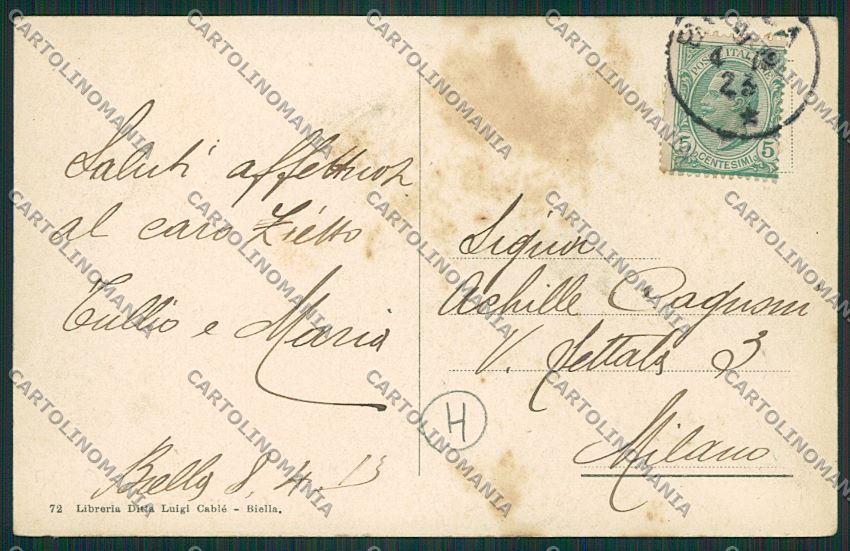 Saluti affettuosi
al caro Zietto
Tullio e Maria
Biella 8. 4. 13
72 Libreria Ditta Luigi Cablé - Biella.
POSTE ITALIANE
5 CENTESIMI 5
4
23
*
Signor
Achille Cagnoni
V. Settala 3
Milano
H
CARTOLINOMANIA